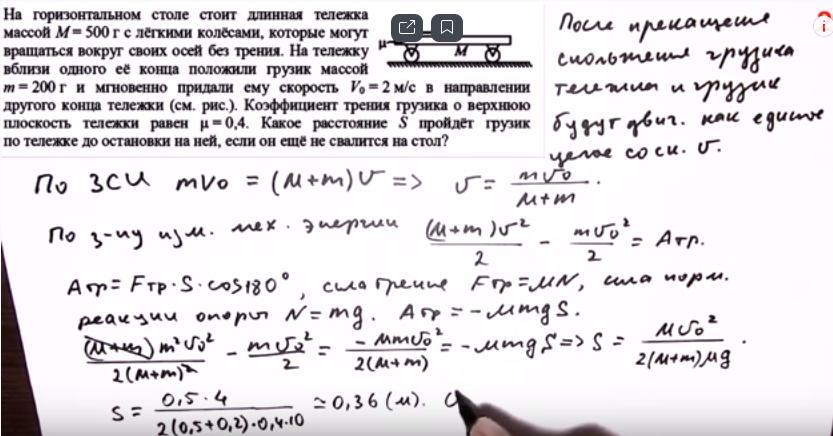 На горизонтальном столе стоит длинная тележка
массой M = 500 г с лёгкими колёсами, которые могут
вращаться вокруг своих осей без трения. На тележку
вблизи одного её конца положили грузик массой
m = 200 г и мгновенно придали ему скорость V₀ = 2 м/с в направлении
другого конца тележки (см. рис.). Коэффициент трения грузика о верхнюю
плоскость тележки равен μ = 0,4. Какое расстояние S пройдёт грузик
по тележке до остановки на ней, если он ещё не свалится на стол?
μ
M
После прекращения
скольжения грузика
тележка и грузик
будут двиг. как единое
целое со ск. υ.
По ЗСИ mυ₀ = (M+m)υ => υ = mυ₀/(M+m).
По з-ну изм. мех. энергии (M+m)υ²/2 - mυ₀²/2 = Aтр.
Aтр = Fтр·S·cos180°, сила трения Fтр = μN, сила норм.
реакции опоры N = mg. Aтр = -μmgS.
(M+m)m²υ₀²/2(M+m)² - mυ₀²/2 = -Mmυ₀²/2(M+m) = -μmgS => S = Mυ₀²/2(M+m)μg.
S = 0,5·4/2(0,5+0,2)·0,4·10 ≃ 0,36 (м).